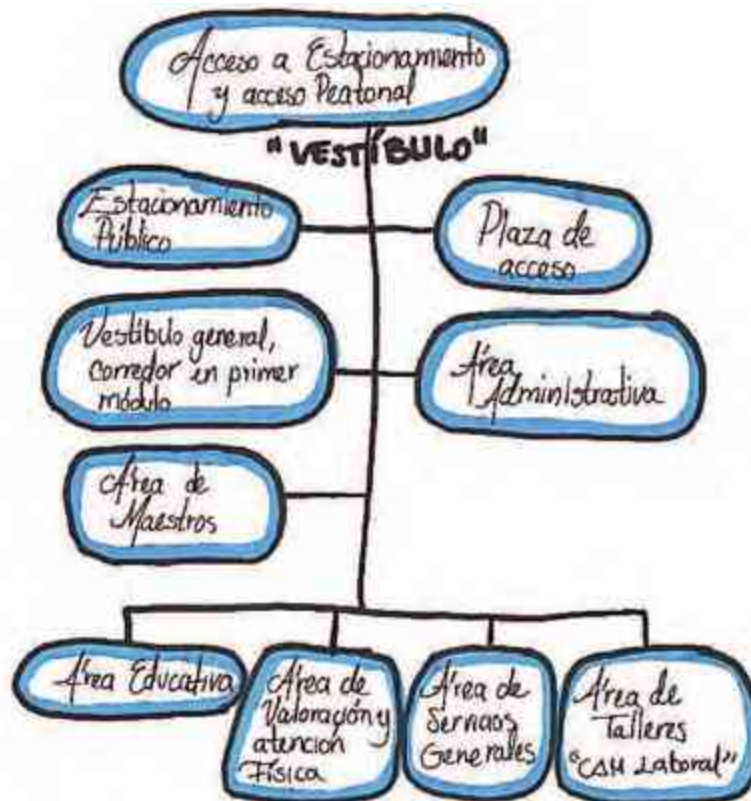 Acceso a Estacionamiento
y acceso Peatonal
"VESTÍBULO"
Estacionamiento
Público
Plaza de
acceso
Vestíbulo general,
corredor en primer
módulo
Área
Administrativa
Área de
Maestros
Área Educativa
Área de
Valoración y
atención
Física
Área de
Servicios
Generales
Área de
Talleres
"CAM Laboral"